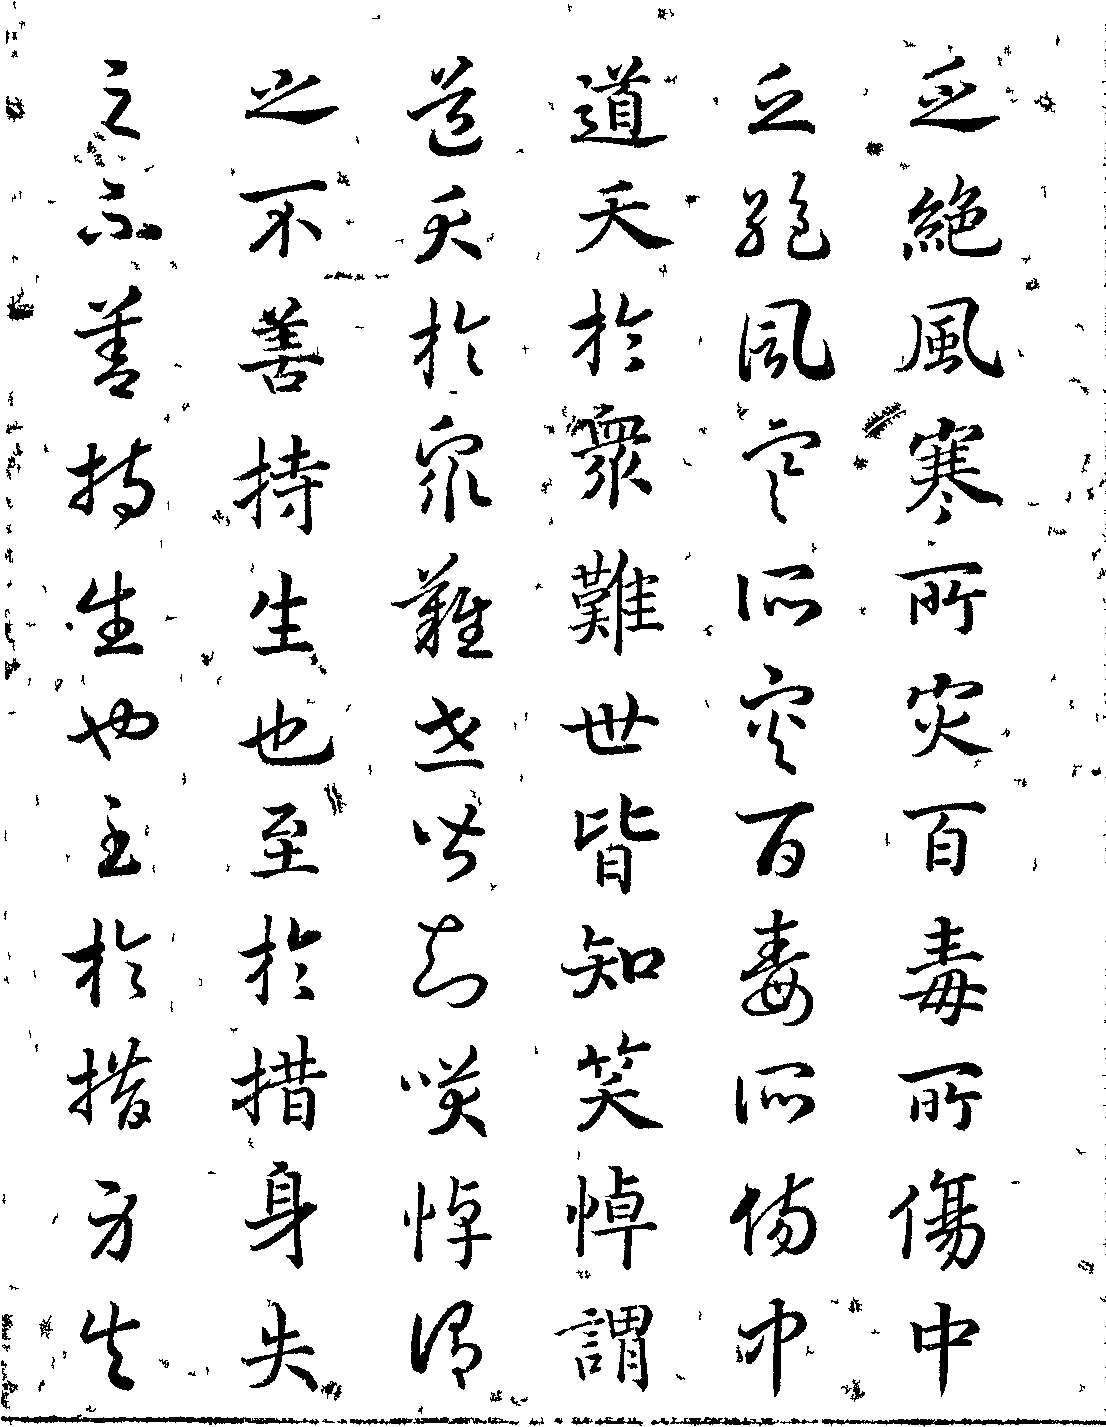 乏絕風寒所災百毒所傷中
乏絕風寒所災百毒所傷中
道夭於衆難世皆知笑悼謂
道夭於衆難世皆知笑悼謂
之不善持生也至於措身失
之不善持生也至於措身失